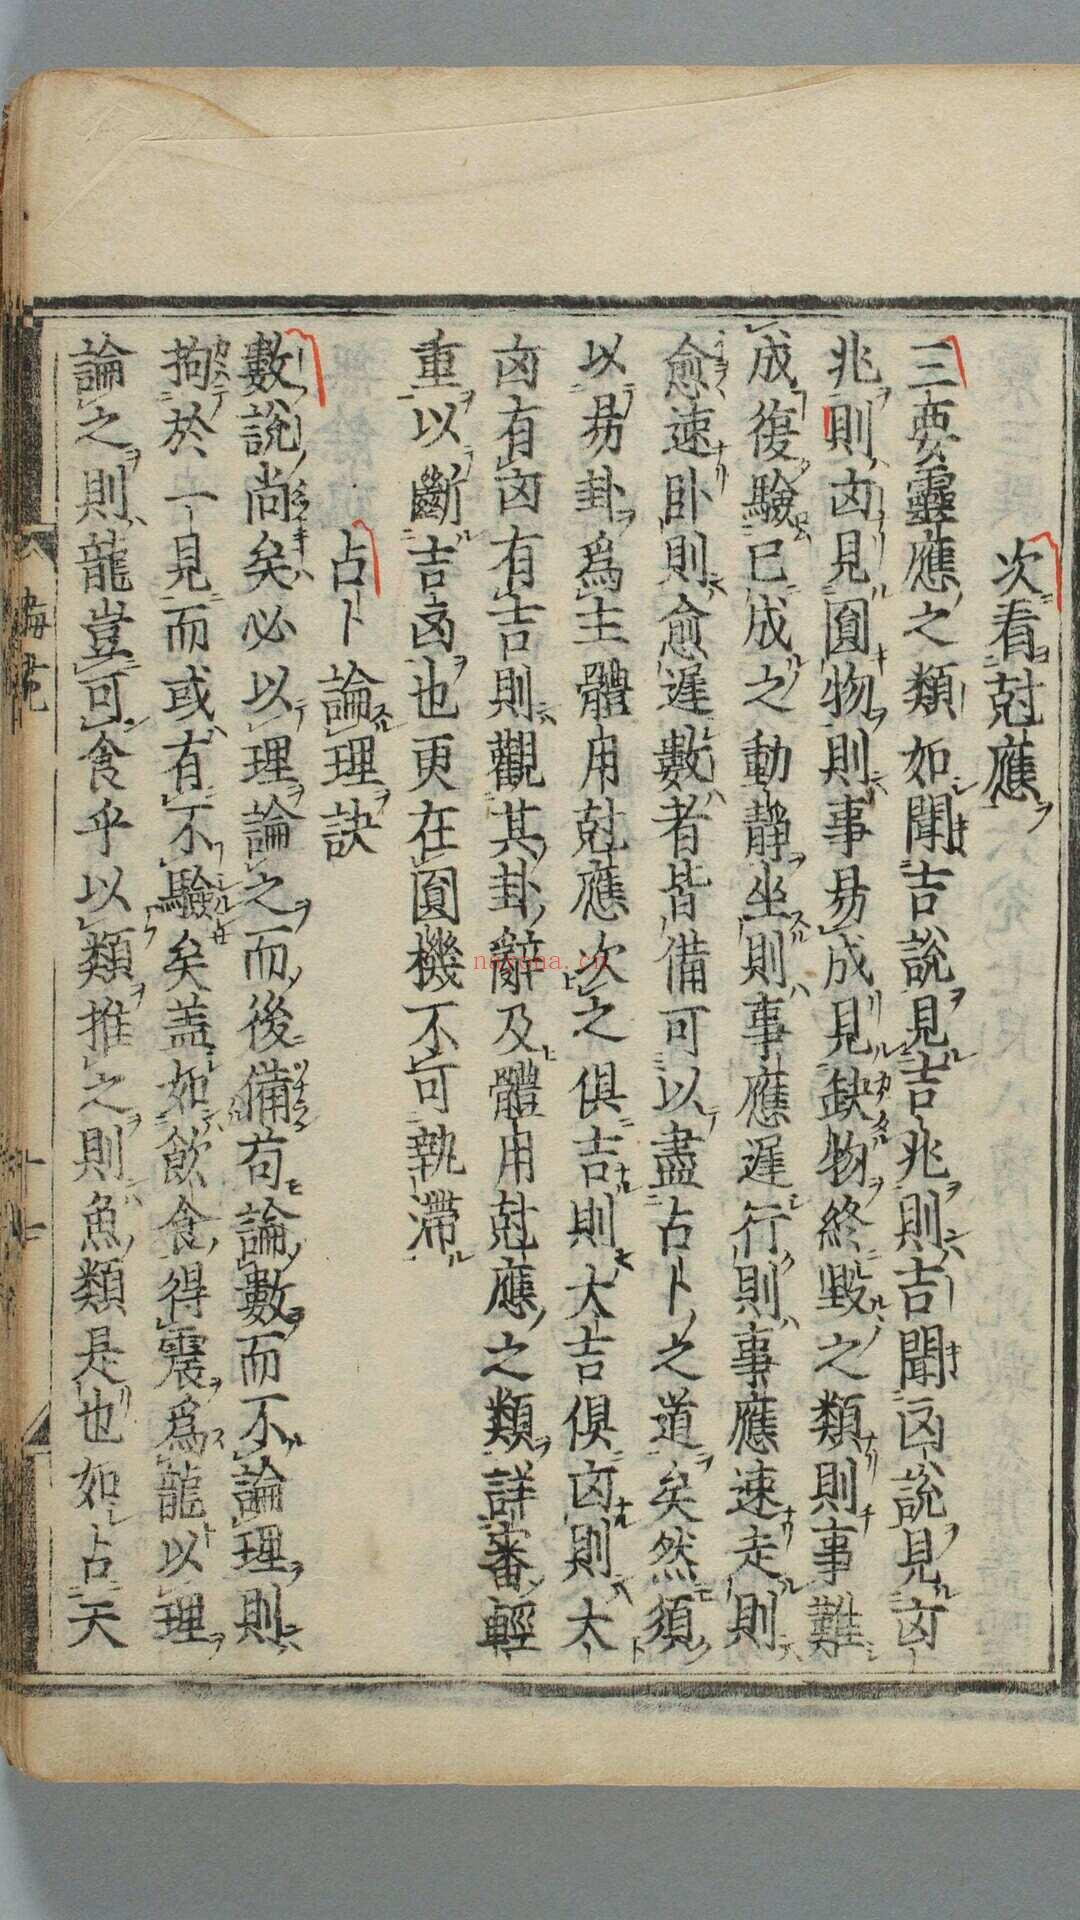 次看尅應
三要靈應之類如聞吉說見吉兆則吉聞凶說見凶
兆則凶見圓物則事易成見缺物終毀之類則事難
成復驗已成之動靜坐則事應遲行則事應速走則
愈速卧則愈遲數者皆備可以盡占卜之道矣然須
以易卦爲主體用尅應次之俱吉則大吉俱凶則大
凶有凶有吉則觀其卦辭及體用尅應之類詳審輕
重以斷吉凶也更在圓機不可執滯
占卜論理訣
數說尚矣必以理論之而後備苟論數而不論理則
拘於一見而或有不驗矣盖如飲食得震爲龍以理
論之則龍豈可食乎以類推之則魚類是也如占天
梅花
naxsha.cn